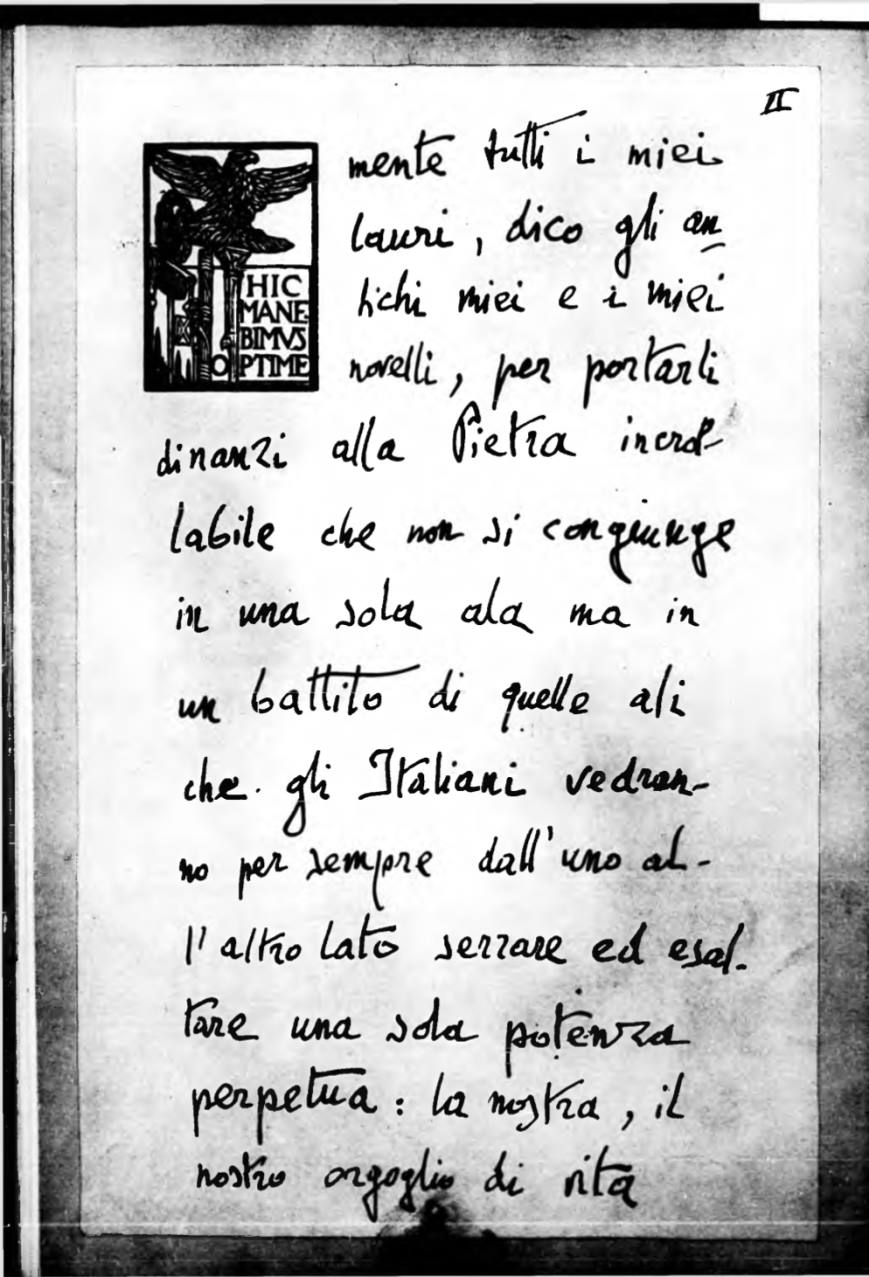 II
HIC
MANE
BIMVS
OPTIME
mente tutti i miei
lauri, dico gli an
tichi miei e i miei
novelli, per portarli
dinanzi alla Pietra incrol-
labile che non si congiunge
in una sola ala ma in
un battito di quelle ali
che gli Italiani vedran-
no per sempre dall'uno al-
l'altro lato serrare ed esal-
tare una sola potenza
perpetua: la nostra, il
nostro orgoglio di vita